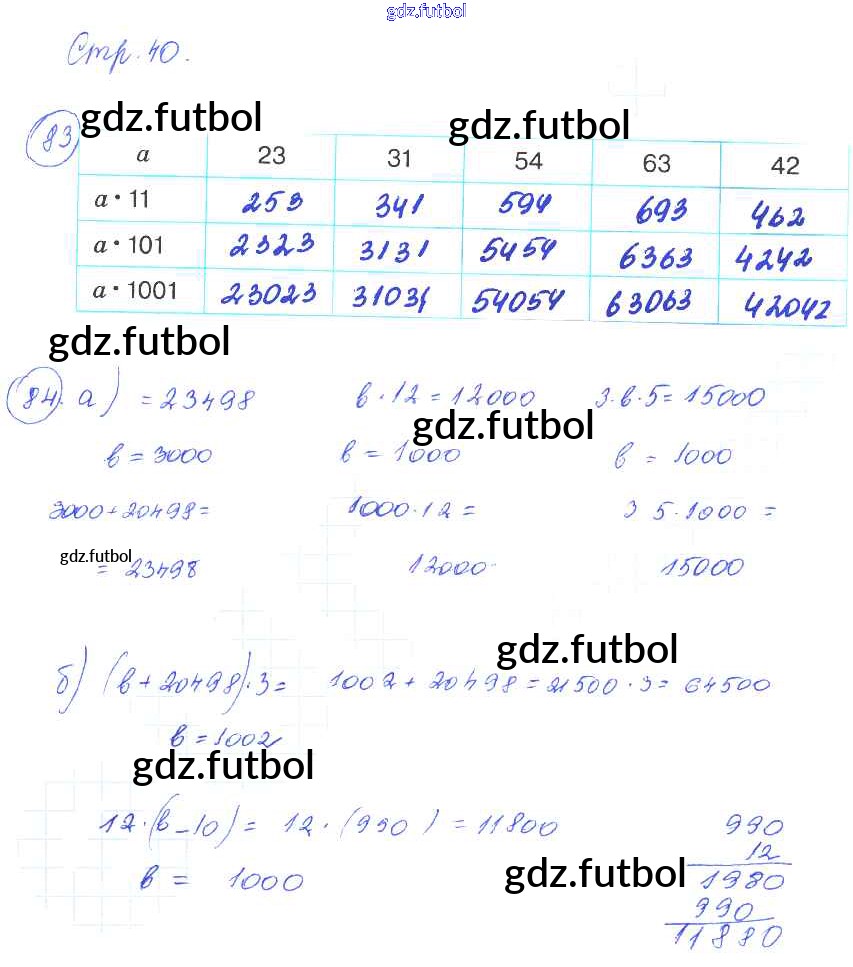 gdz.futbol
Стр. 40.
gdz.futbol gdz.futbol
83
a 23 31 54 63 42
a · 11 253 341 594 693 462
a · 101 2323 3131 5454 6363 4242
a · 1001 23023 31031 54054 63063 42042
gdz.futbol
84. а) = 23498 в · 12 = 12000 3 · в · 5 = 15000
gdz.futbol
в = 3000 в = 1000 в = 1000
3000 + 20498 = 1000 · 12 = 3 5 · 1000 =
gdz.futbol
= 23498 12000 15000
gdz.futbol
б) (в + 20498) · 3 = 1002 + 20498 = 21500 · 3 = 64500
в = 1002
gdz.futbol
12 · (в – 10) = 12 · (990) = 11800 990
12
gdz.futbol
в = 1000 1980
990
11880